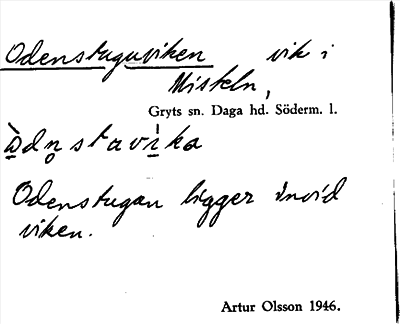 Odenstuguviken vik i
Misteln,
Gryts sn. Daga hd. Söderm. l.
òdn̥stavi̍ka
Odenstugan ligger invid
viken.
Artur Olsson 1946.